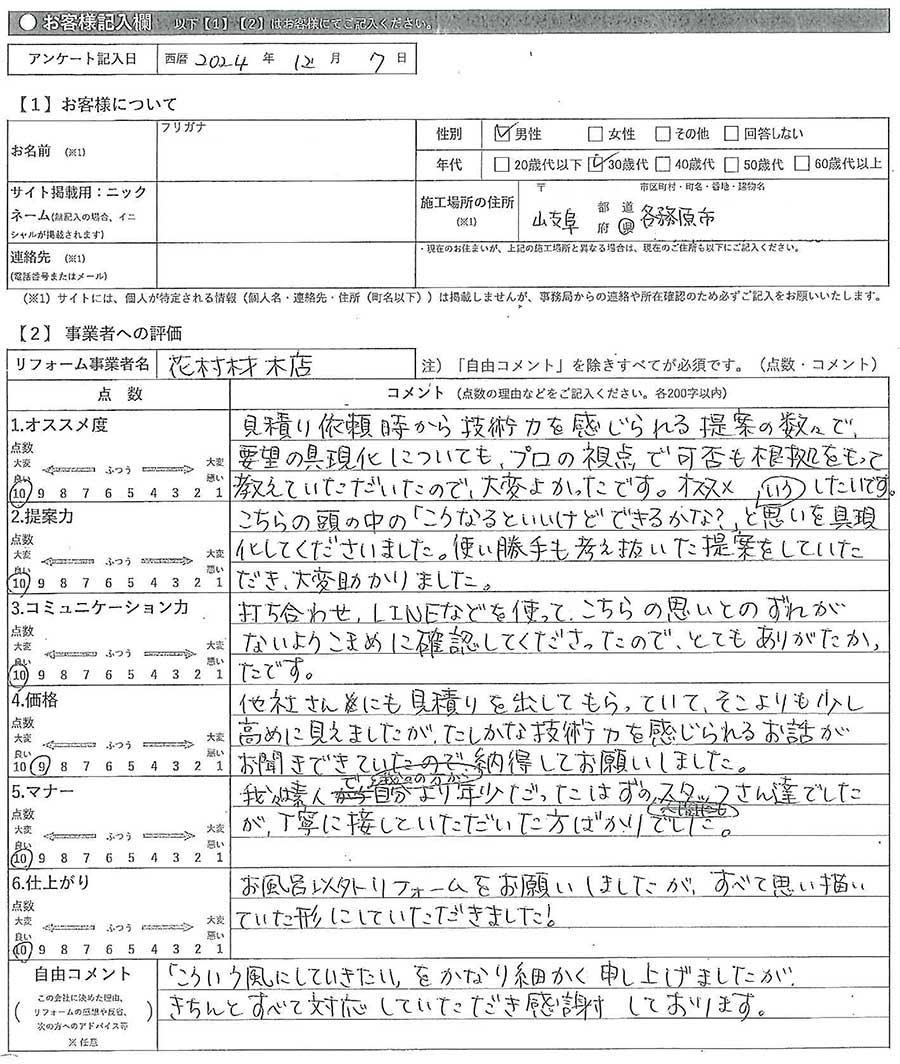 ● お客様記入欄 以下【1】【2】はお客様にてご記入ください。
アンケート記入日 西暦 2024 年 12 月 7 日
【1】お客様について
お名前 (※1) フリガナ
性別 ☑男性 □女性 □その他 □回答しない
年代 □20歳代以下 ☑30歳代 □40歳代 □50歳代 □60歳代以上
サイト掲載用：ニックネーム(無記入の場合、イニシャルが掲載されます)
施工場所の住所 (※1) 〒 市区町村・町名・番地・建物名
岐阜 都道府県 各務原市
連絡先 (※1)
(電話番号またはメール)
・現在のお住まいが、上記の施工場所と異なる場合は、現在のご住所も以下にご記入ください。
(※1) サイトには、個人が特定される情報（個人名・連絡先・住所（町名以下））は掲載しませんが、事務局からの連絡や所在確認のため必ずご記入をお願いいたします。
【2】事業者への評価
リフォーム事業者名 花村材木店 注）「自由コメント」を除きすべてが必須です。（点数・コメント）
点 数 コメント（点数の理由などをご記入ください。各200字以内）
1.オススメ度
点数
大変良い ふつう 大変悪い
10 9 8 7 6 5 4 3 2 1
見積り依頼時から技術力を感じられる提案の数々で、
要望の具現化についても、プロの視点で可否も根拠をもって
教えていただいたので、大変よかったです。オススメ
したいです。
2.提案力
点数
大変良い ふつう 大変悪い
10 9 8 7 6 5 4 3 2 1
こちらの頭の中の「こうなるといいけどできるかな？」と思いを具現
化してくださいました。使い勝手も考え抜いた提案をしていた
だき、大変助かりました。
3.コミュニケーション力
点数
大変良い ふつう 大変悪い
10 9 8 7 6 5 4 3 2 1
打ち合わせ、LINEなどを使って、こちらの思いとのずれが
ないようこまめに確認してくださったので、とてもありがたかっ
たです。
4.価格
点数
大変良い ふつう 大変悪い
10 9 8 7 6 5 4 3 2 1
他社さんにも見積りを出してもらっていて、そこよりも少し
高めに見えましたが、たしかな技術力を感じられるお話が
お聞きできていたので、納得してお願いしました。
5.マナー
点数
大変良い ふつう 大変悪い
10 9 8 7 6 5 4 3 2 1
で 我々の方が
我々素人 より年少だったはずの、スタッフさん達でした
が、丁寧に接していただいた方ばかりでした。
6.仕上がり
点数
大変良い ふつう 大変悪い
10 9 8 7 6 5 4 3 2 1
お風呂以外リフォームをお願いしましたが、すべて思い描い
ていた形にしていただきました！
自由コメント
（この会社に決めた理由、リフォームの感想や反省、次の方へのアドバイス等）
※ 任意
「こういう風にしていきたい」をかなり細かく申し上げましたが、
きちんとすべて対応していただき感謝しております。